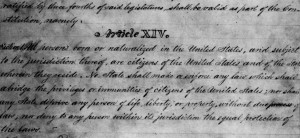 ratified by three fourths of said legislatures, shall be valid as part of the Con-
stitution, namely:
Article XIV.
Section 1. All persons born or naturalized in the United States, and subject
to the jurisdiction thereof, are citizens of the United States and of the State
wherein they reside. No State shall make or enforce any law which shall
abridge the privileges or immunities of citizens of the United States; nor shall
any State deprive any person of life, liberty, or property, without due process of
law, nor deny to any person within its jurisdiction the equal protection of
the laws.